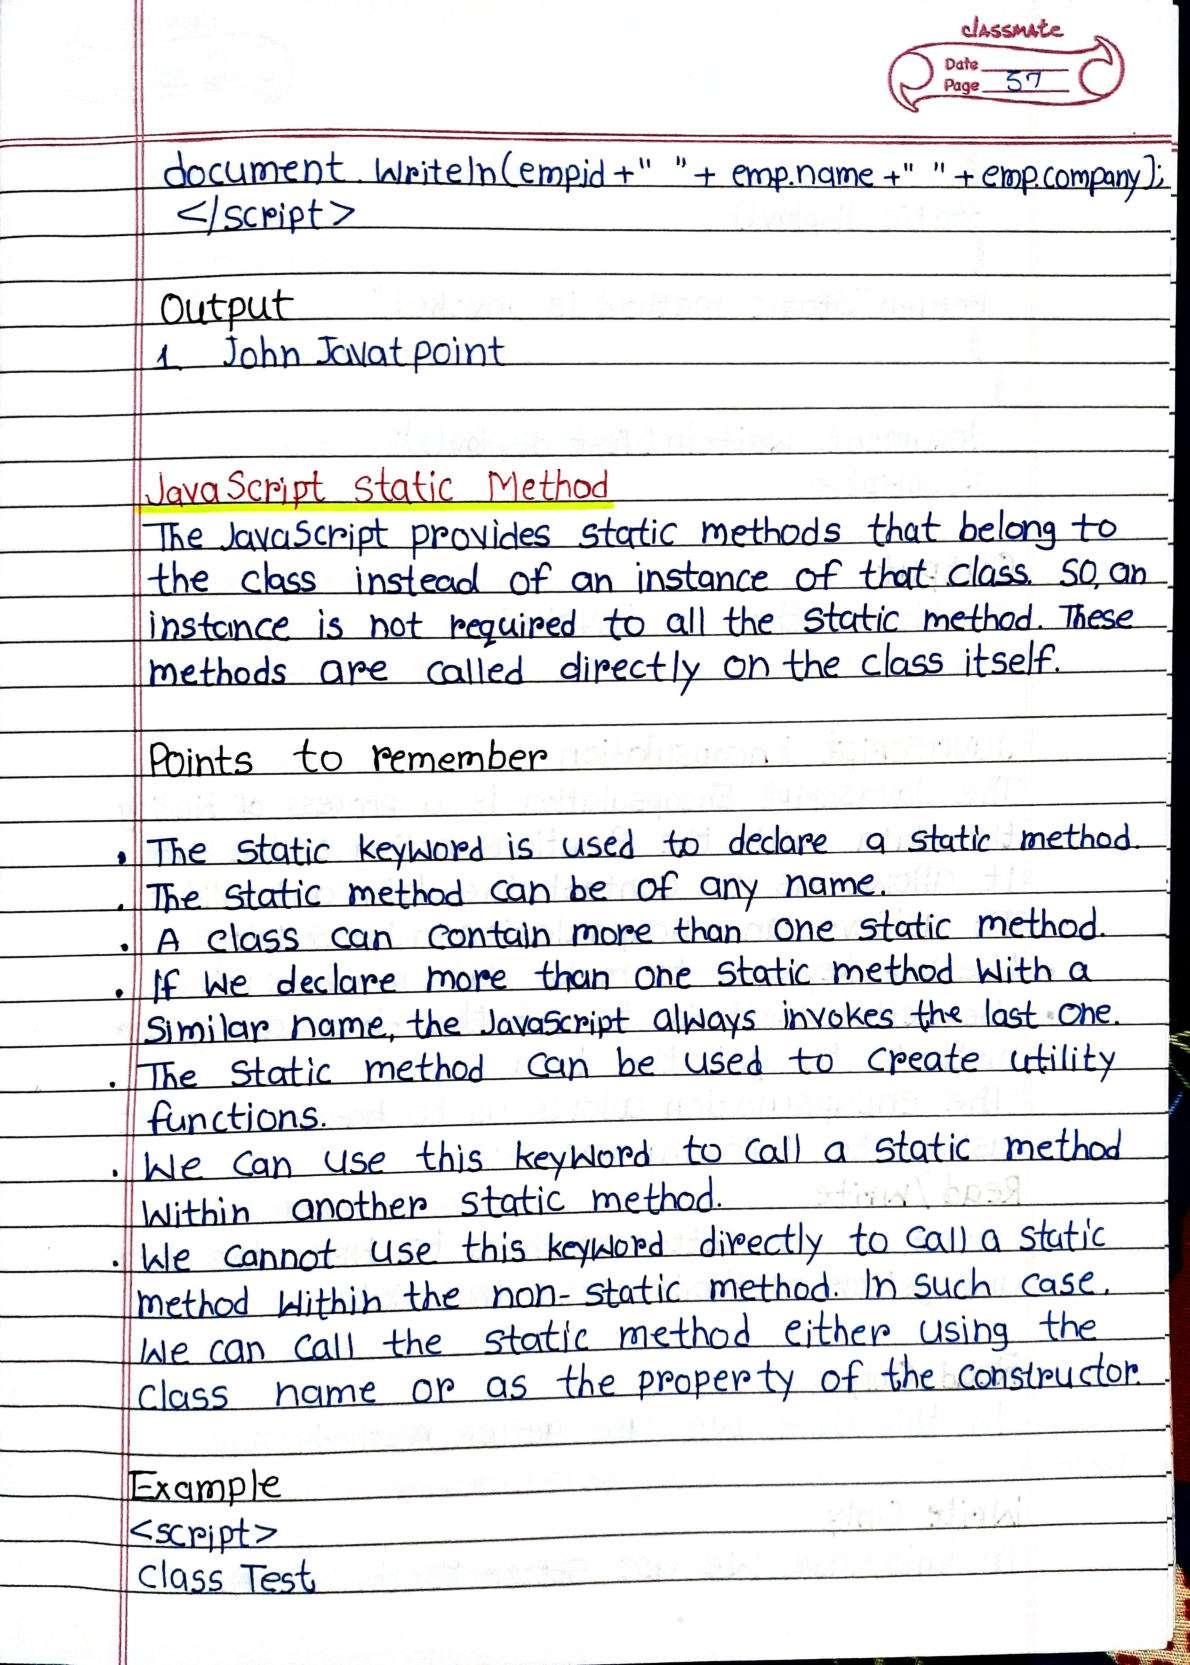 classmate
Date
Page 57
document. writeln(empid +" "+ emp.name +" "+ emp.company);
</script>
Output
1 John Javatpoint
JavaScript static Method
The JavaScript provides static methods that belong to
the class instead of an instance of that class. So, an
instance is not required to all the static method. These
methods are called directly on the class itself.
Points to remember
• The static keyword is used to declare a static method.
• The static method can be of any name.
• A class can contain more than one static method.
• If we declare more than one static method with a
similar name, the JavaScript always invokes the last one.
• The static method can be used to create utility
functions.
• We can use this keyword to call a static method
within another static method.
• We cannot use this keyword directly to call a static
method within the non-static method. In such case,
we can call the static method either using the
class name or as the property of the constructor.
Example
<script>
class Test